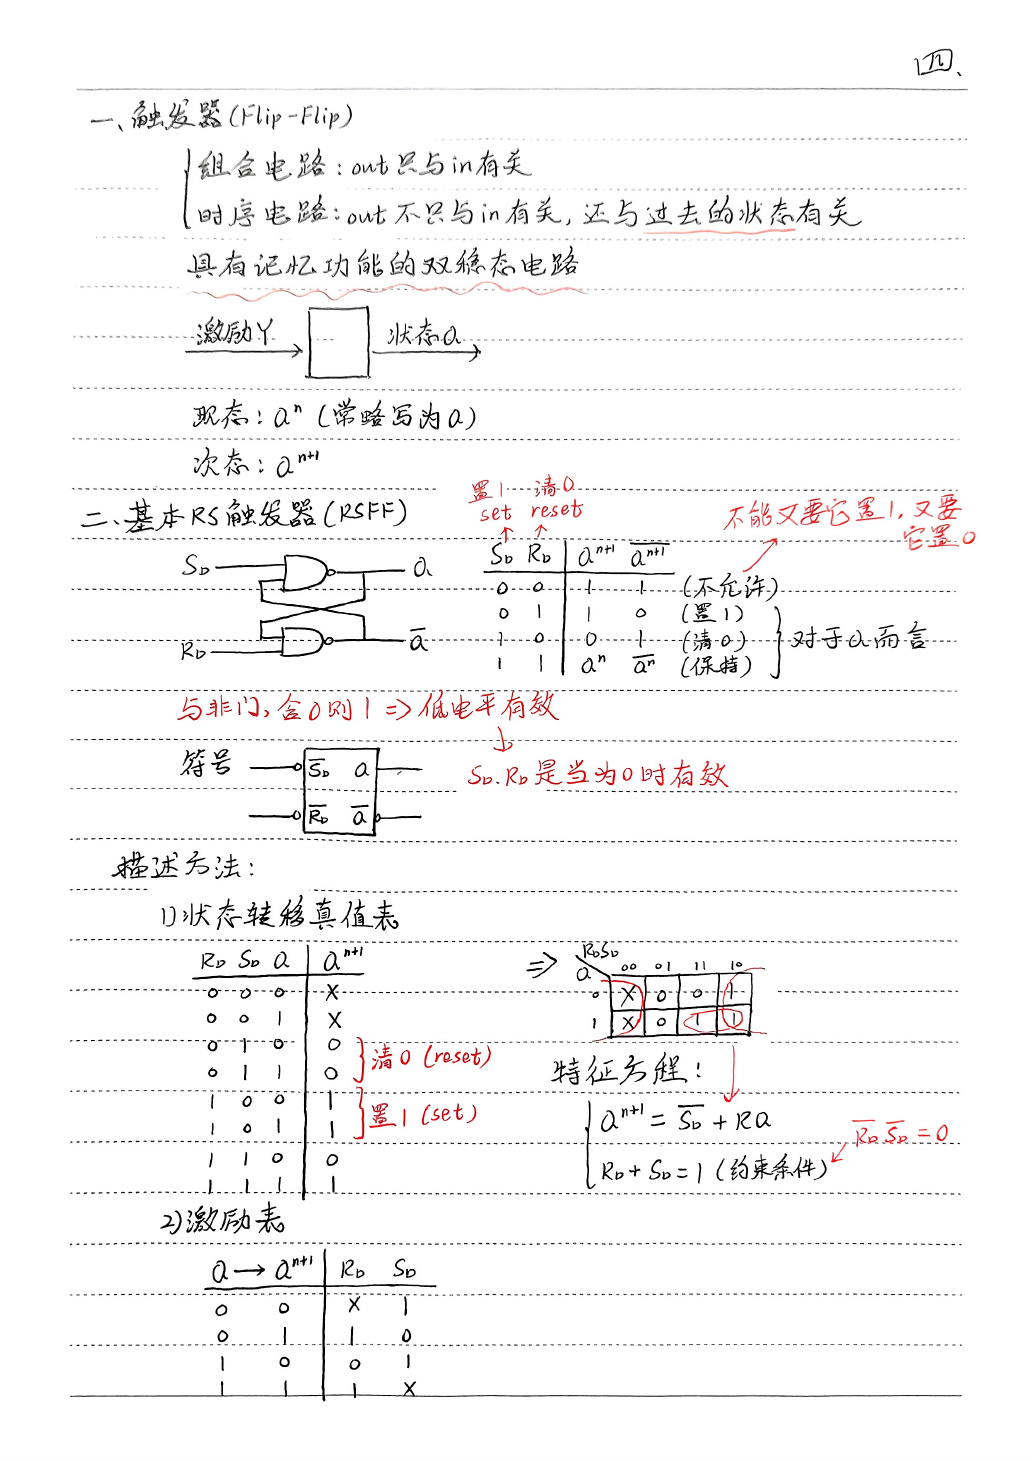 四、
一、触发器(Flip-Flip)
组合电路:out只与in有关
时序电路:out不只与in有关,还与过去的状态有关
具有记忆功能的双稳态电路
激励Y 状态Q
现态:Qⁿ(常略写为Q)
次态:Qⁿ⁺¹
二、基本RS触发器(RSFF)
置1 清0
set reset
不能又要它置1,又要
它置0
S_D
R_D
Q
Q̅
S_D R_D Qⁿ⁺¹ Q̅ⁿ⁺¹
0 0 1 1 (不允许)
0 1 1 0 (置1)
1 0 0 1 (清0)
1 1 Qⁿ Q̅ⁿ (保持)
对于Q而言
与非门,含0则1 => 低电平有效
S_D.R_D是当为0时有效
符号
S̅_D Q
R̅_D Q̅
描述方法:
1)状态转移真值表
R_D S_D Q Qⁿ⁺¹
0 0 0 X
0 0 1 X
0 1 0 0
0 1 1 0
清0(reset)
1 0 0 1
1 0 1 1
置1(set)
1 1 0 0
1 1 1 1
=>
R_D S_D
Q 00 01 11 10
0 X 0 0 1
1 X 0 1 1
特征方程:
Qⁿ⁺¹ = S̅_D + RQ
R_D + S_D = 1 (约束条件)
R̅_D S̅_D = 0
2)激励表
Q → Qⁿ⁺¹ R_D S_D
0 0 X 1
0 1 1 0
1 0 0 1
1 1 1 X